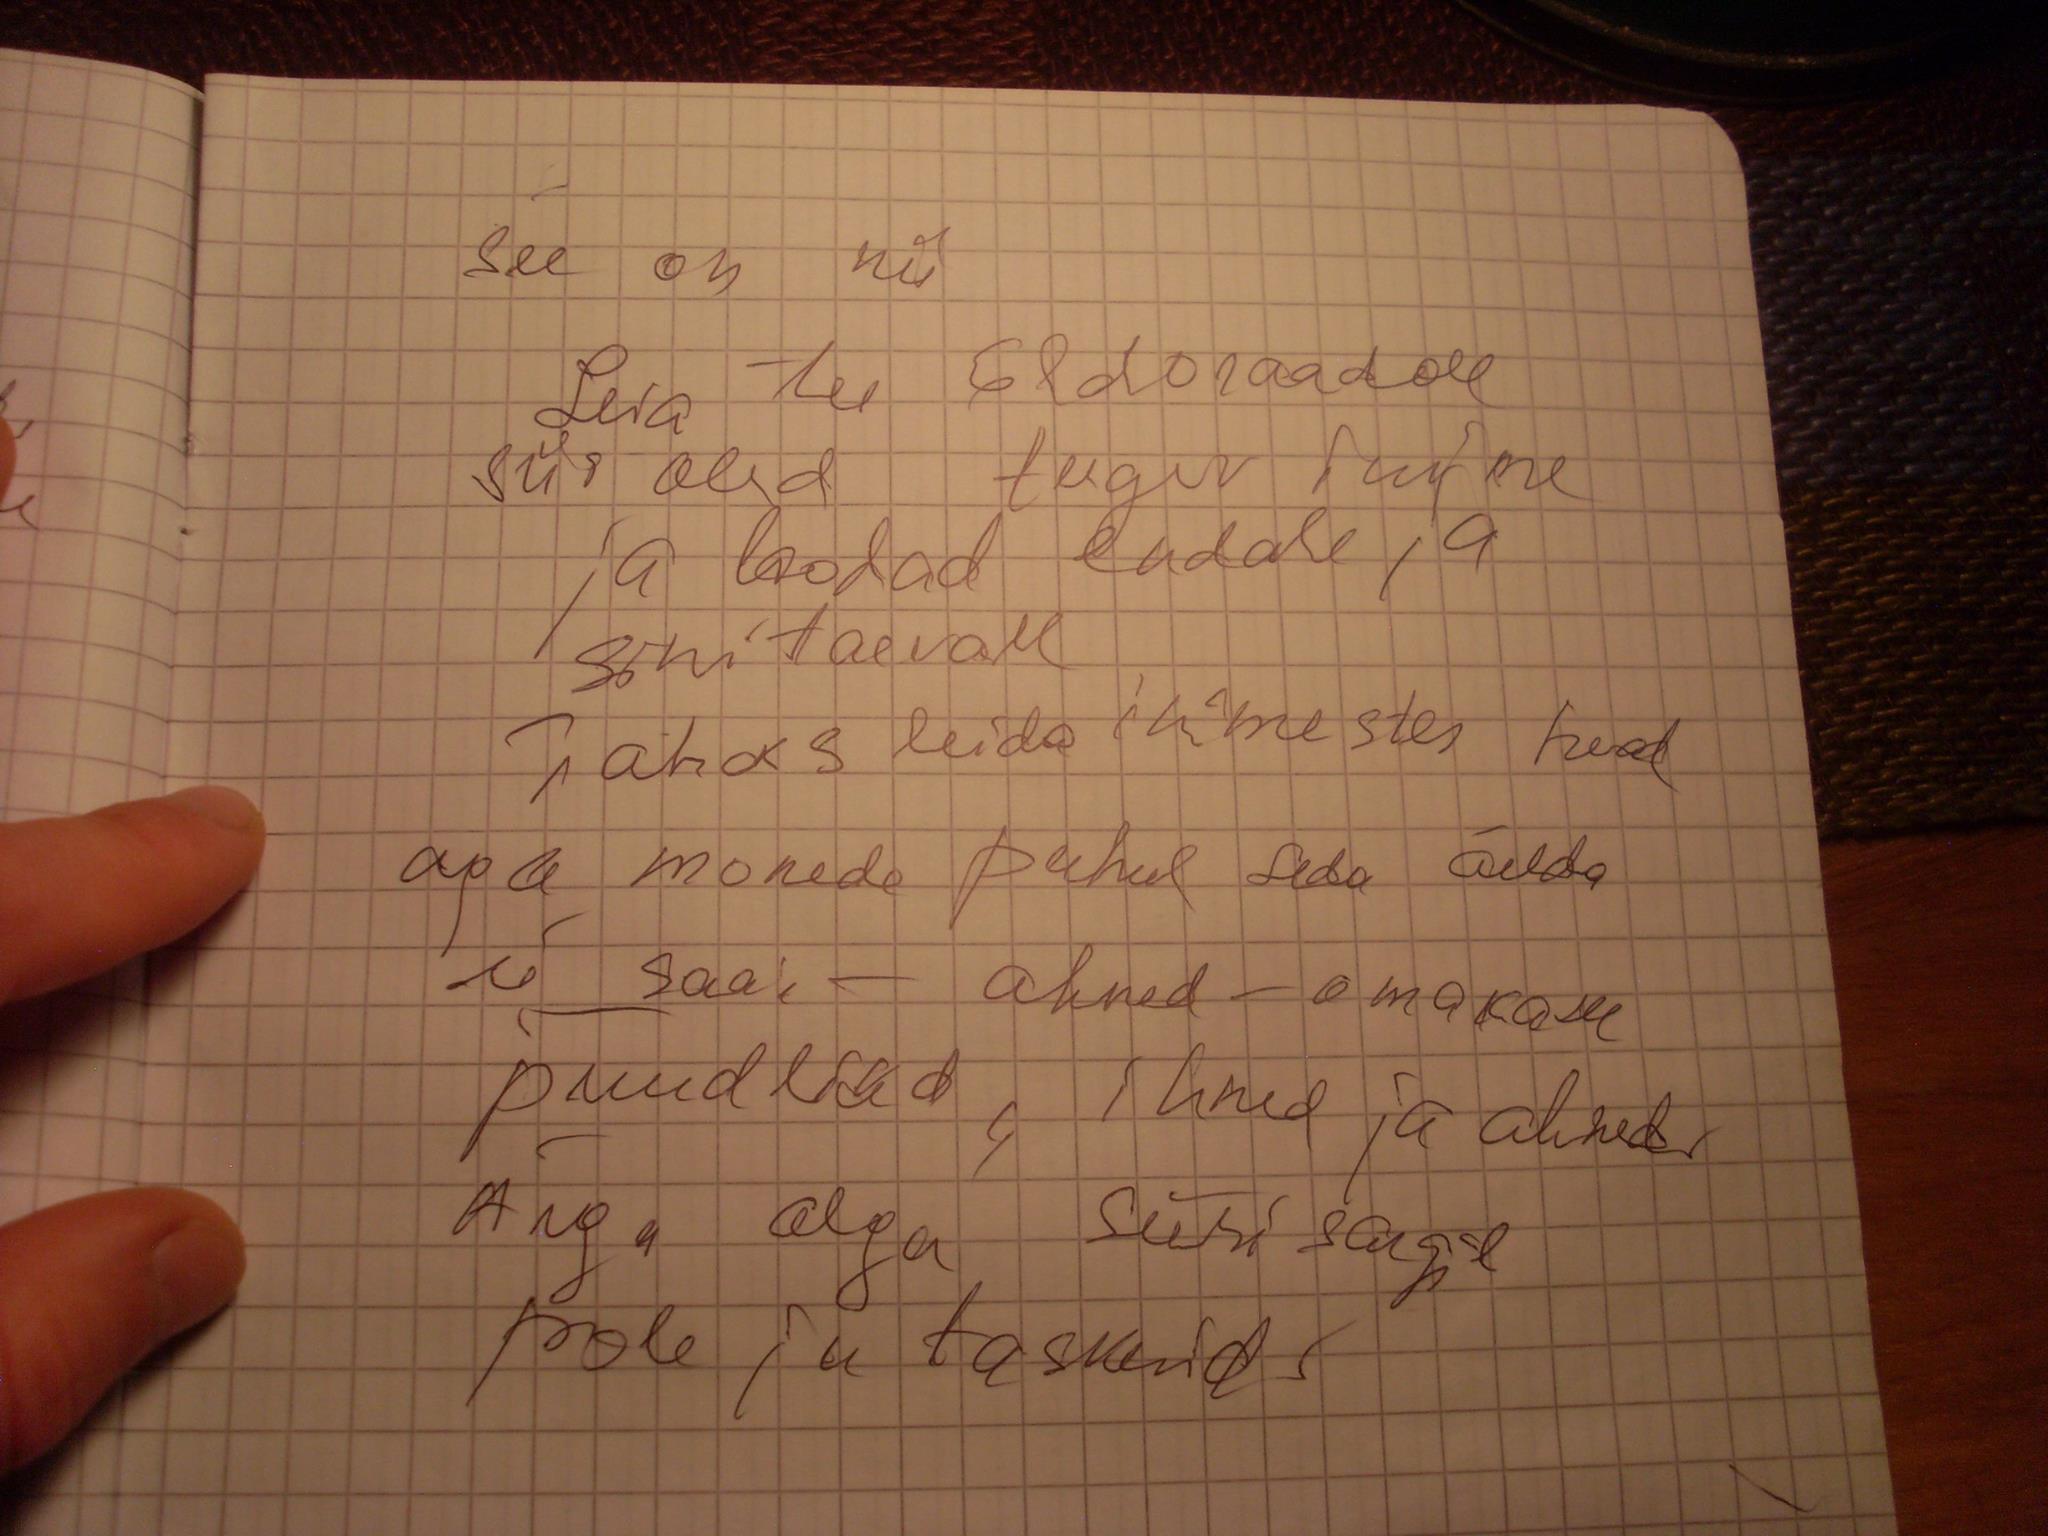 See on nii
Leia tee Eldoraadole
siis oled tugev inimene
ja loodad endale ja
sinitaevale
Tahaks leida inimestes head
aga monede puhul seda öelda
ei saa - ahned - omakasu
püüdlikad, ihned ja ahned,
Ärga olga surisärgil
pole ju taskuid,